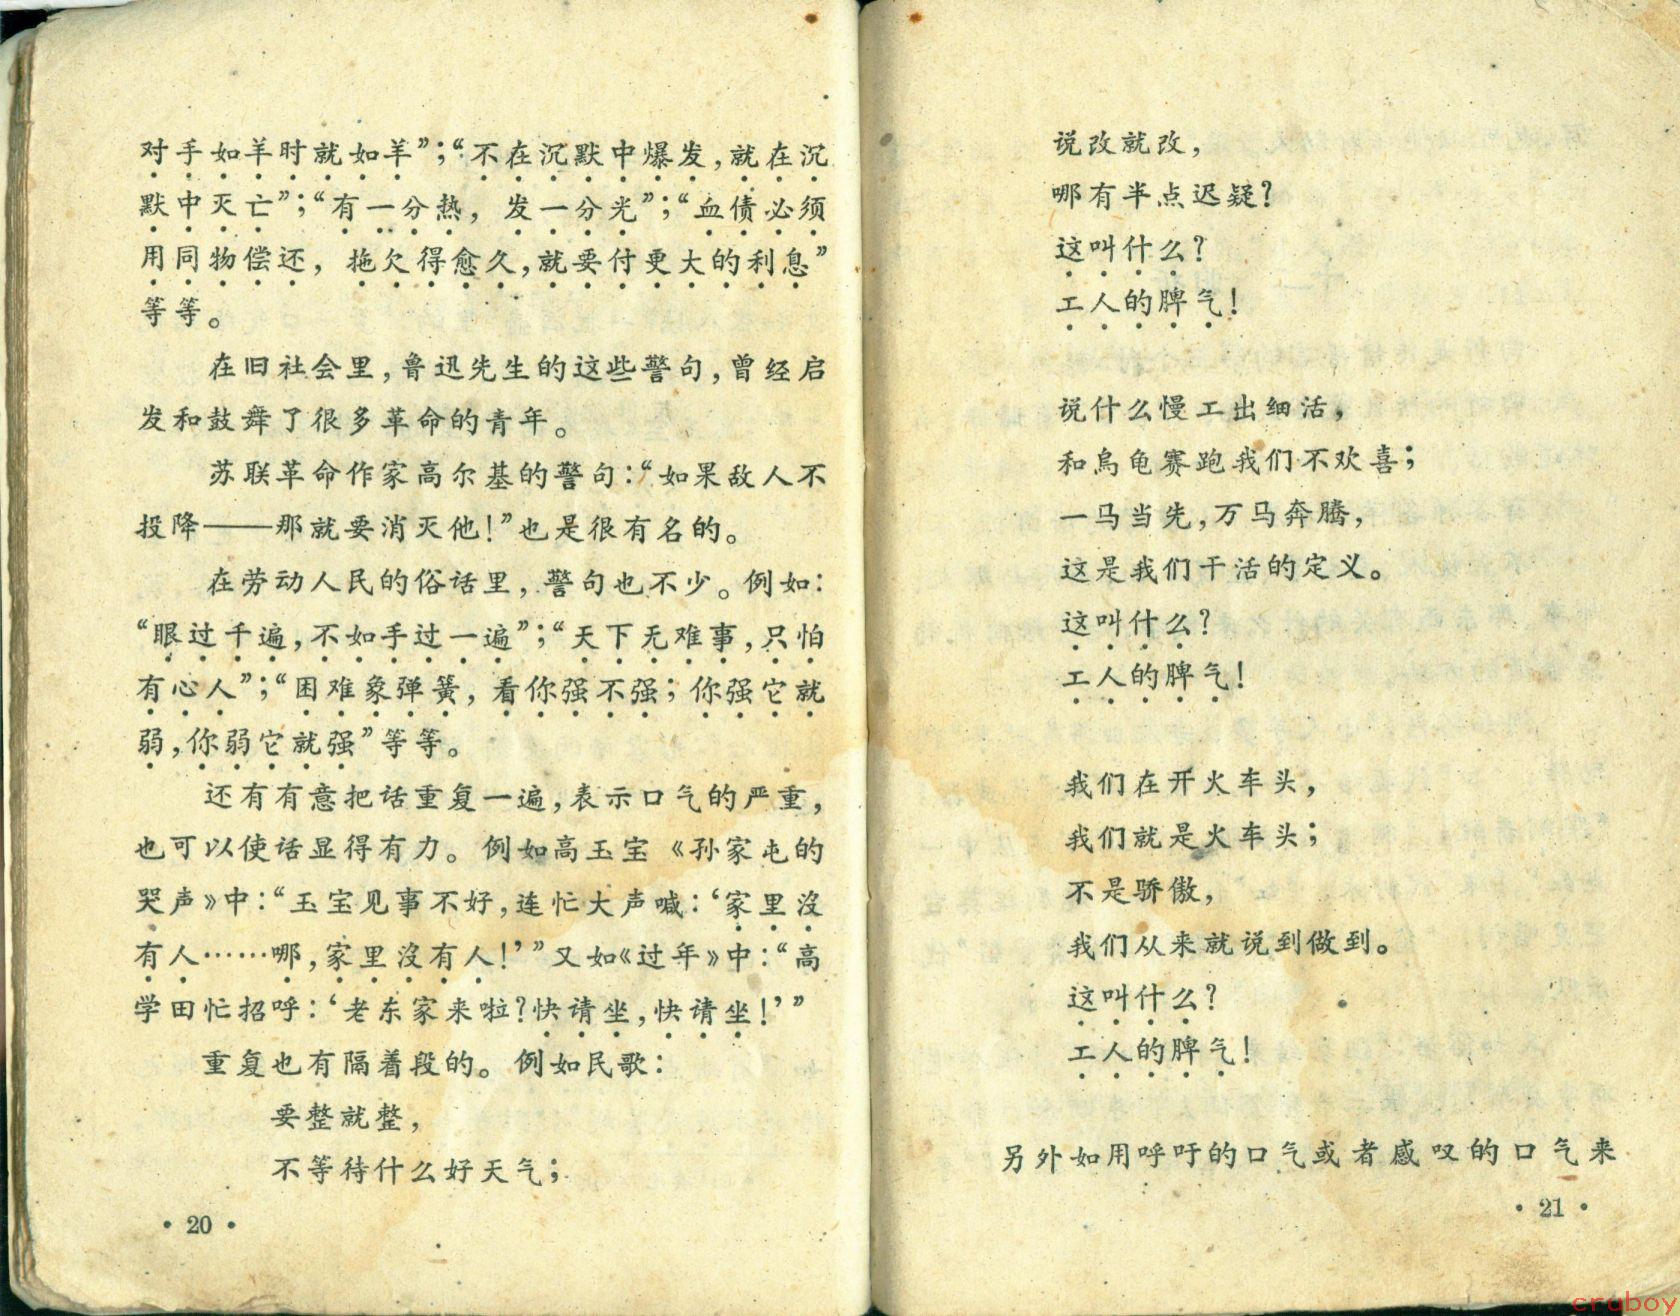 对手如羊时就如羊”；“不在沉默中爆发，就在沉
默中灭亡”；“有一分热，发一分光”；“血债必须
用同物偿还，拖欠得愈久，就要付更大的利息”
等等。
在旧社会里，鲁迅先生的这些警句，曾经启
发和鼓舞了很多革命的青年。
苏联革命作家高尔基的警句：“如果敌人不
投降——那就要消灭他！”也是很有名的。
在劳动人民的俗话里，警句也不少。例如：
“眼过千遍，不如手过一遍”；“天下无难事，只怕
有心人”；“困难象弹簧，看你强不强；你强它就
弱，你弱它就强”等等。
还有有意把话重复一遍，表示口气的严重，
也可以使话显得有力。例如高玉宝《孙家屯的
哭声》中：“玉宝见事不好，连忙大声喊：‘家里沒
有人……哪，家里沒有人！’”又如《过年》中：“高
学田忙招呼：‘老东家来啦？快请坐，快请坐！’”
重复也有隔着段的。例如民歌：
要整就整，
不等待什么好天气；
• 20 •
说改就改，
哪有半点迟疑？
这叫什么？
工人的脾气！
说什么慢工出细活，
和烏龟赛跑我们不欢喜；
一马当先，万马奔腾，
这是我们干活的定义。
这叫什么？
工人的脾气！
我们在开火车头，
我们就是火车头；
不是骄傲，
我们从来就说到做到。
这叫什么？
工人的脾气！
另外如用呼吁的口气或者感叹的口气来
• 21 •
cruboy